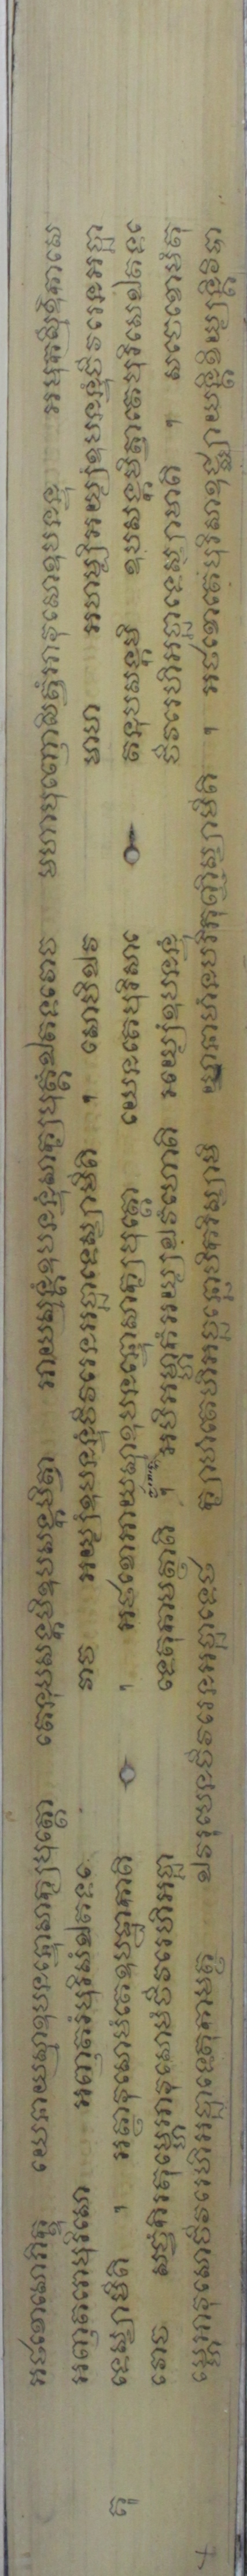 អថខោសោភិក្ខុ យេនាយស្មាឧបនន្ទោសក្យបុត្តោ តេនុបសង្កមិឧបសង្កមិត្វា អាយស្មន្តំឧបនន្ទំសក្យបុត្តំឯតទវោច មហាបុញ្ញោសិត្វំអាវុសោឧបនន្ទ អមុកស្មិំឱកាសេ
អញ្ញតរោបុរិសោ អញ្ញតរំបុរិសំឯតទវេ វោច អយ្យំឧបនន្ទំចីវរេនអច្ឆាទេស្សាមីតិ ។ សោបិឯវ មាហ អហម្បិអយ្យំឧបនន្ទំចីវរេនអច្ឆា
ទេស្សាមីតិ ។ អត្ថាវុសោមំតេឧបដ្ឋាកាតិ ។ អថខោអាយស្មាឧបនន្ទោសក្យបុត្តោ យេនតេបុរិសាតេ តនុបសង្កមិ ឧបសង្កមិត្វាតេបុរិសេឯតទវេ
វោច សច្ចំកិរតុម្ហេអាវុសោមំចីវរេហិអច្ឆា ទេតុកាមត្ថាតិ ។ អបិអម្ហាកំអយ្យឯវំហោតិ អយ្យំឧបនន្ទំ ចីវរេហិអច្ឆាទេស្សាមាតិ ។ សចេខោមំតុ
ម្ហេអាវុសោចីវរេហិអច្ឆាទេតុកាមត្ថ ឯវរូបេនចីវរេនអច្ឆាទេថ ក្យាហំតេហិអច្ឆន្នោបិករិស្សាមិ យានាហំនបរិភុញ្ជិស្សាមីតិ ។ អថខោតេបុរិសាឧជ្ឈាយន្តិខិយ្យន្តិវិបា